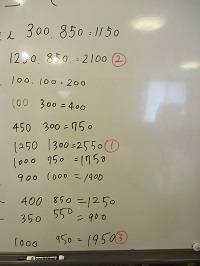 300.850=1150
1250.850.=2100 ②
100.100=200
100 300=400
450 300=750
1250 1300=2550 ①
1000 750=1750
900 1000=1900
400 850=1250
350 550=900
1000 950=1950 ③